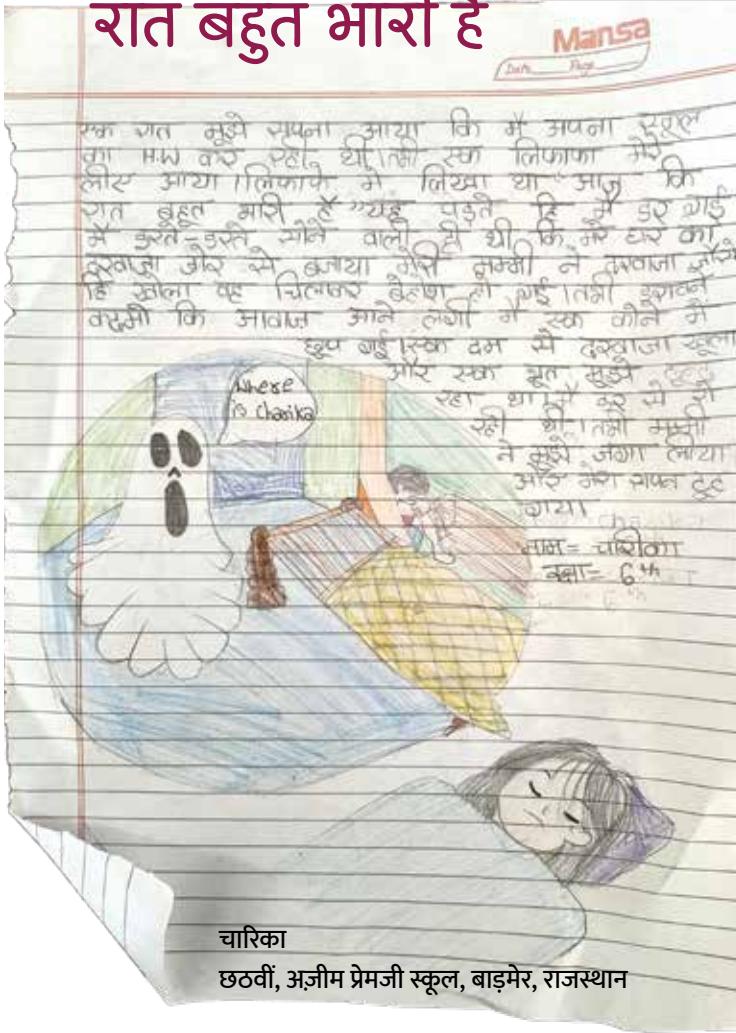 रात बहुत भारी है
Mansa
Date Page
एक रात मुझे सपना आया कि मै अपना स्कूल
का H.W कर रही थी।तभी एक लिफाफा मेरे
लीए आया।लिफाफे मे लिखा था "आज कि
रात बहुत भारी है "यह पड़ते हि मै डर गई
मै डरते-डरते सोने वाली ही थी कि मेरे घर का
दरवाजा जोर से बजाया मेरी मम्मी ने दरवाजा जैसे
हि खोला वह चिलाकर बेहोश हो गई।तभी डरावने
कदमो कि आवाज आने लगी मै एक कोने मे
छूप गई।एक दम से दरवाजा खूला
और एक भूत मुझे
रहा था।मै डर से रो
रही थी।तभी मम्मी
ने मुझे जगा लीया
और मेरा सपन टूट
गया।
नाम= चारिका
कक्षा= 6th
Where
is Charika
चारिका
छठवीं, अज़ीम प्रेमजी स्कूल, बाड़मेर, राजस्थान